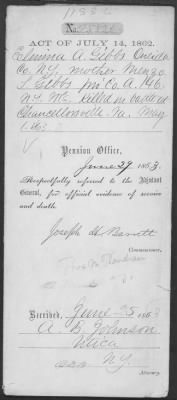 ACT OF JULY 14, 1862.
Elmina A. Gibbs Oneida
Co. N.Y. mother
Gibbs Co. A. 146
N.Y. killed in battle at
Chancellorsville, Va. May
1863
Pension Office,
June 29 1863.
Respectfully referred to the Adjutant
General, for official evidence of service
and death.
Joseph H. Barrett
Commissioner.
Received, June 25 1863
A. B. Johnson
Utica
N.Y.
Attorney.